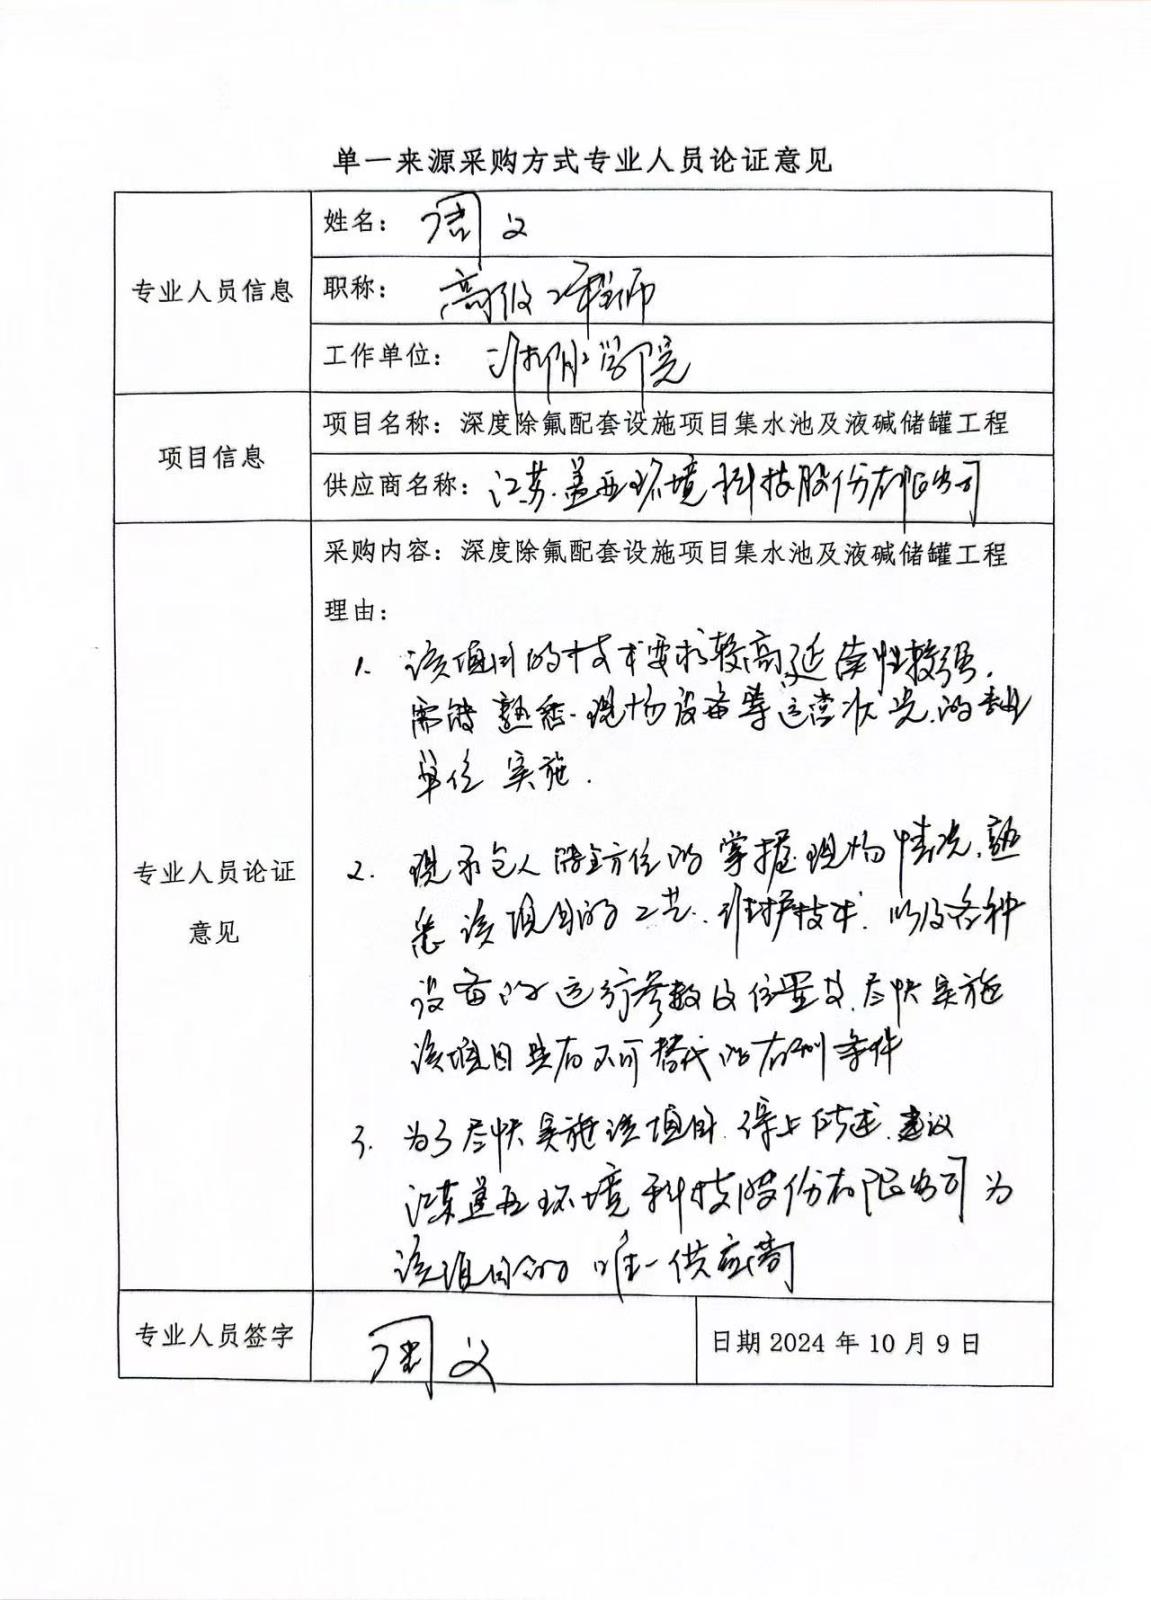 单一来源采购方式专业人员论证意见
专业人员信息
姓名：周文
职称：高级工程师
工作单位：淮阴学院
项目信息
项目名称：深度除氟配套设施项目集水池及液碱储罐工程
供应商名称：江苏盖亚环境科技股份有限公司
专业人员论证
意见
采购内容：深度除氟配套设施项目集水池及液碱储罐工程
理由：
1. 该项目的技术要求较高延续性较强，
需要熟悉现场设备等运营状况的专业
单位实施.
2. 现承包人能全方位的掌握现场情况，熟
悉该项目的工艺、维护技术、以及各种
设备的运行参数及位置 尽快实施
该项目具有不可替代的有利条件
3. 为了尽快实施该项目，综上所述，建议
江苏盖亚环境科技股份有限公司为
该项目的唯一供应商
专业人员签字
周文
日期 2024 年 10 月 9 日